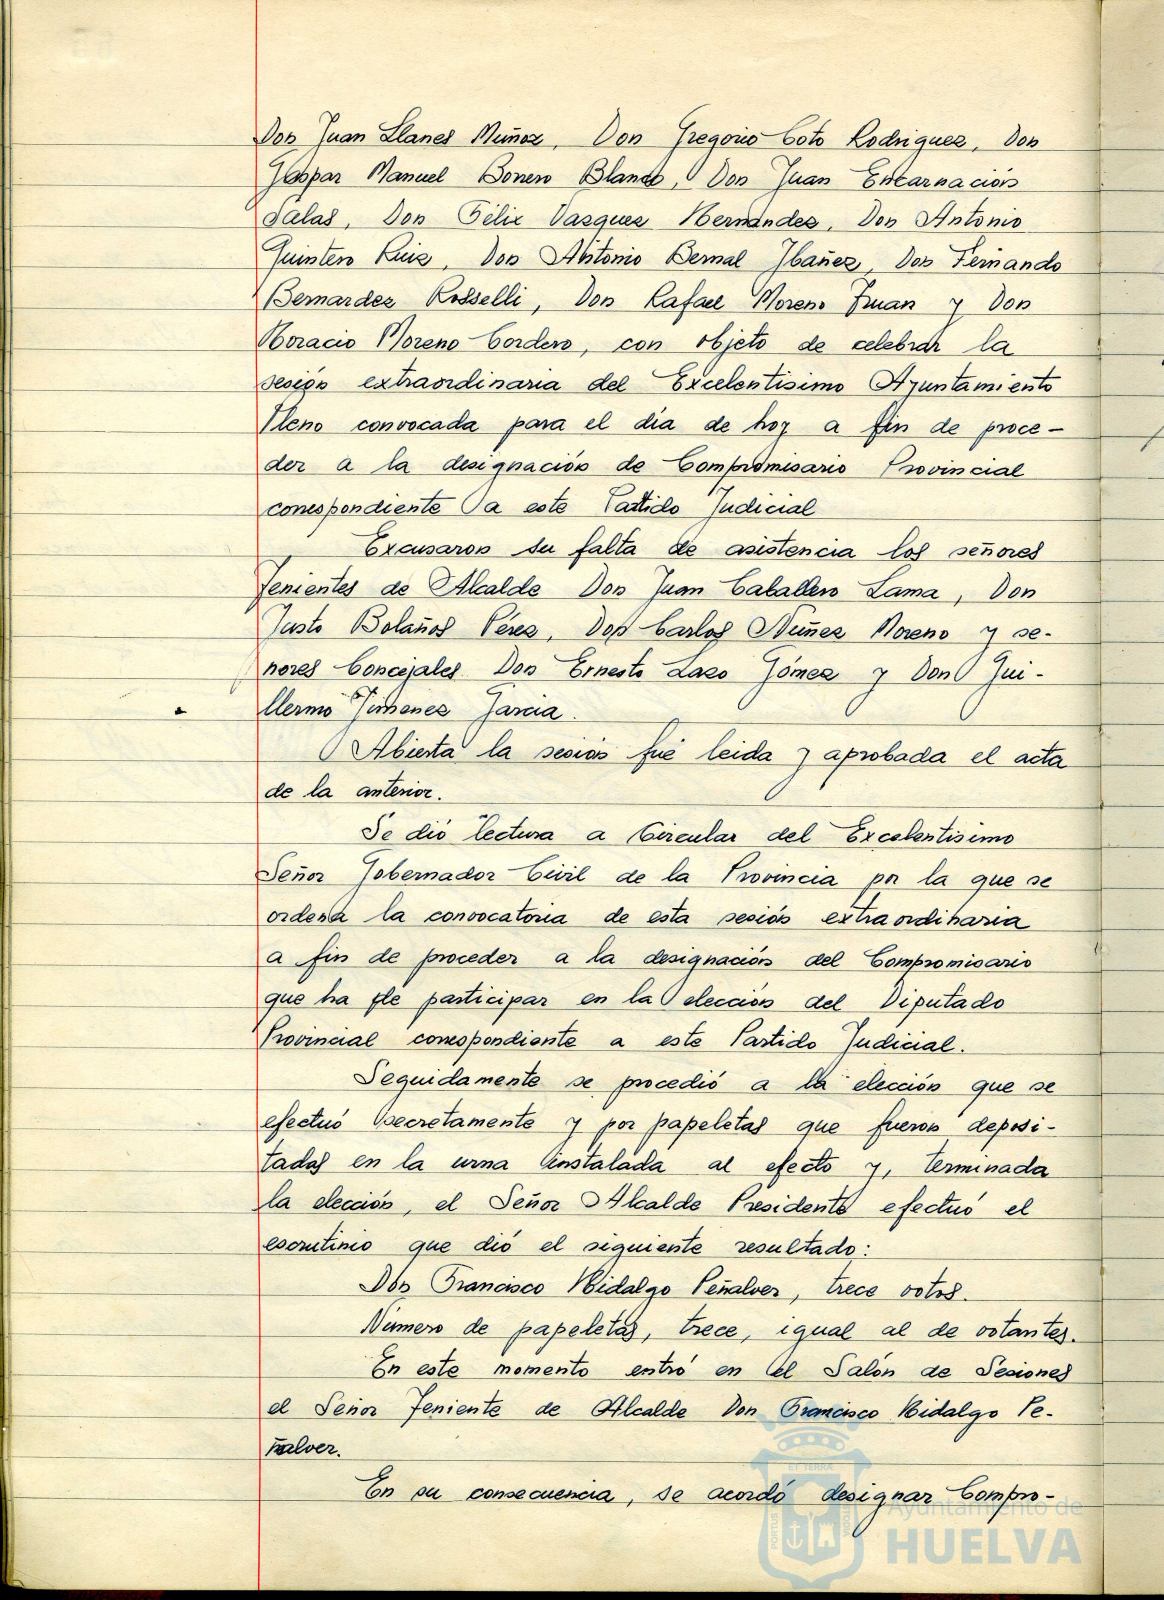 Don Juan Llanes Muñoz, Don Gregorio Coto Rodriguez, Don
Gaspar Manuel Borrero Blanco, Don Juan Encarnación
Salas, Don Félix Vasquez Hernández, Don Antonio
Quintero Ruiz, Don Antonio Bernal Ibañez, Don Fernando
Bernardez Rosselli, Don Rafael Moreno Fruan y Don
Horacio Moreno Cordero, con objeto de celebrar la
sesión extraordinaria del Excelentisimo Ayuntamiento
Pleno convocada para el día de hoy a fin de proce-
der a la designación de Compromisario Provincial
correspondiente a este Partido Judicial
Excusaron su falta de asistencia los señores
Tenientes de Alcalde Don Juan Caballero Lama, Don
Justo Bolaños Pérez, Don Carlos Núñez Moreno y se-
ñores Concejales Don Ernesto Lazo Gómez y Don Gui-
llermo Jimenez Garcia.
Abierta la sesión fué leida y aprobada el acta
de la anterior.
Se dió lectura a Circular del Excelentisimo
Señor Gobernador Civil de la Provincia por la que se
ordena la convocatoria de esta sesión extraordinaria
a fin de proceder a la designación del Compromisario
que ha de participar en la elección del Diputado
Provincial correspondiente a este Partido Judicial.
Seguidamente se procedió a la elección que se
efectuó secretamente y por papeletas que fueron deposi-
tadas en la urna instalada al efecto y, terminada
la elección, el Señor Alcalde Presidente efectuó el
escrutinio que dió el siguiente resultado:
Don Francisco Hidalgo Peñalver, trece votos.
Número de papeletas, trece, igual al de votantes.
En este momento entró en el Salón de Sesiones
el Señor Teniente de Alcalde Don Francisco Hidalgo Pe-
ñalver.
En su consecuencia, se acordó designar Compro-
Ayuntamiento de
HUELVA